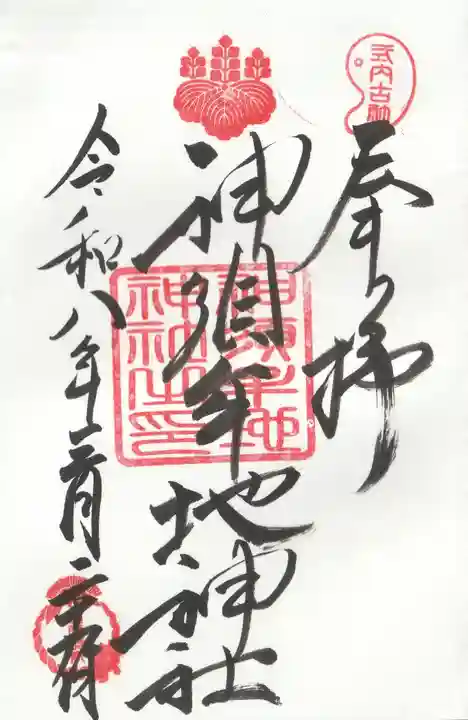 式内古社
奉拝
神須牟地神社
神須牟地
神社之印
令和八年二月二十日